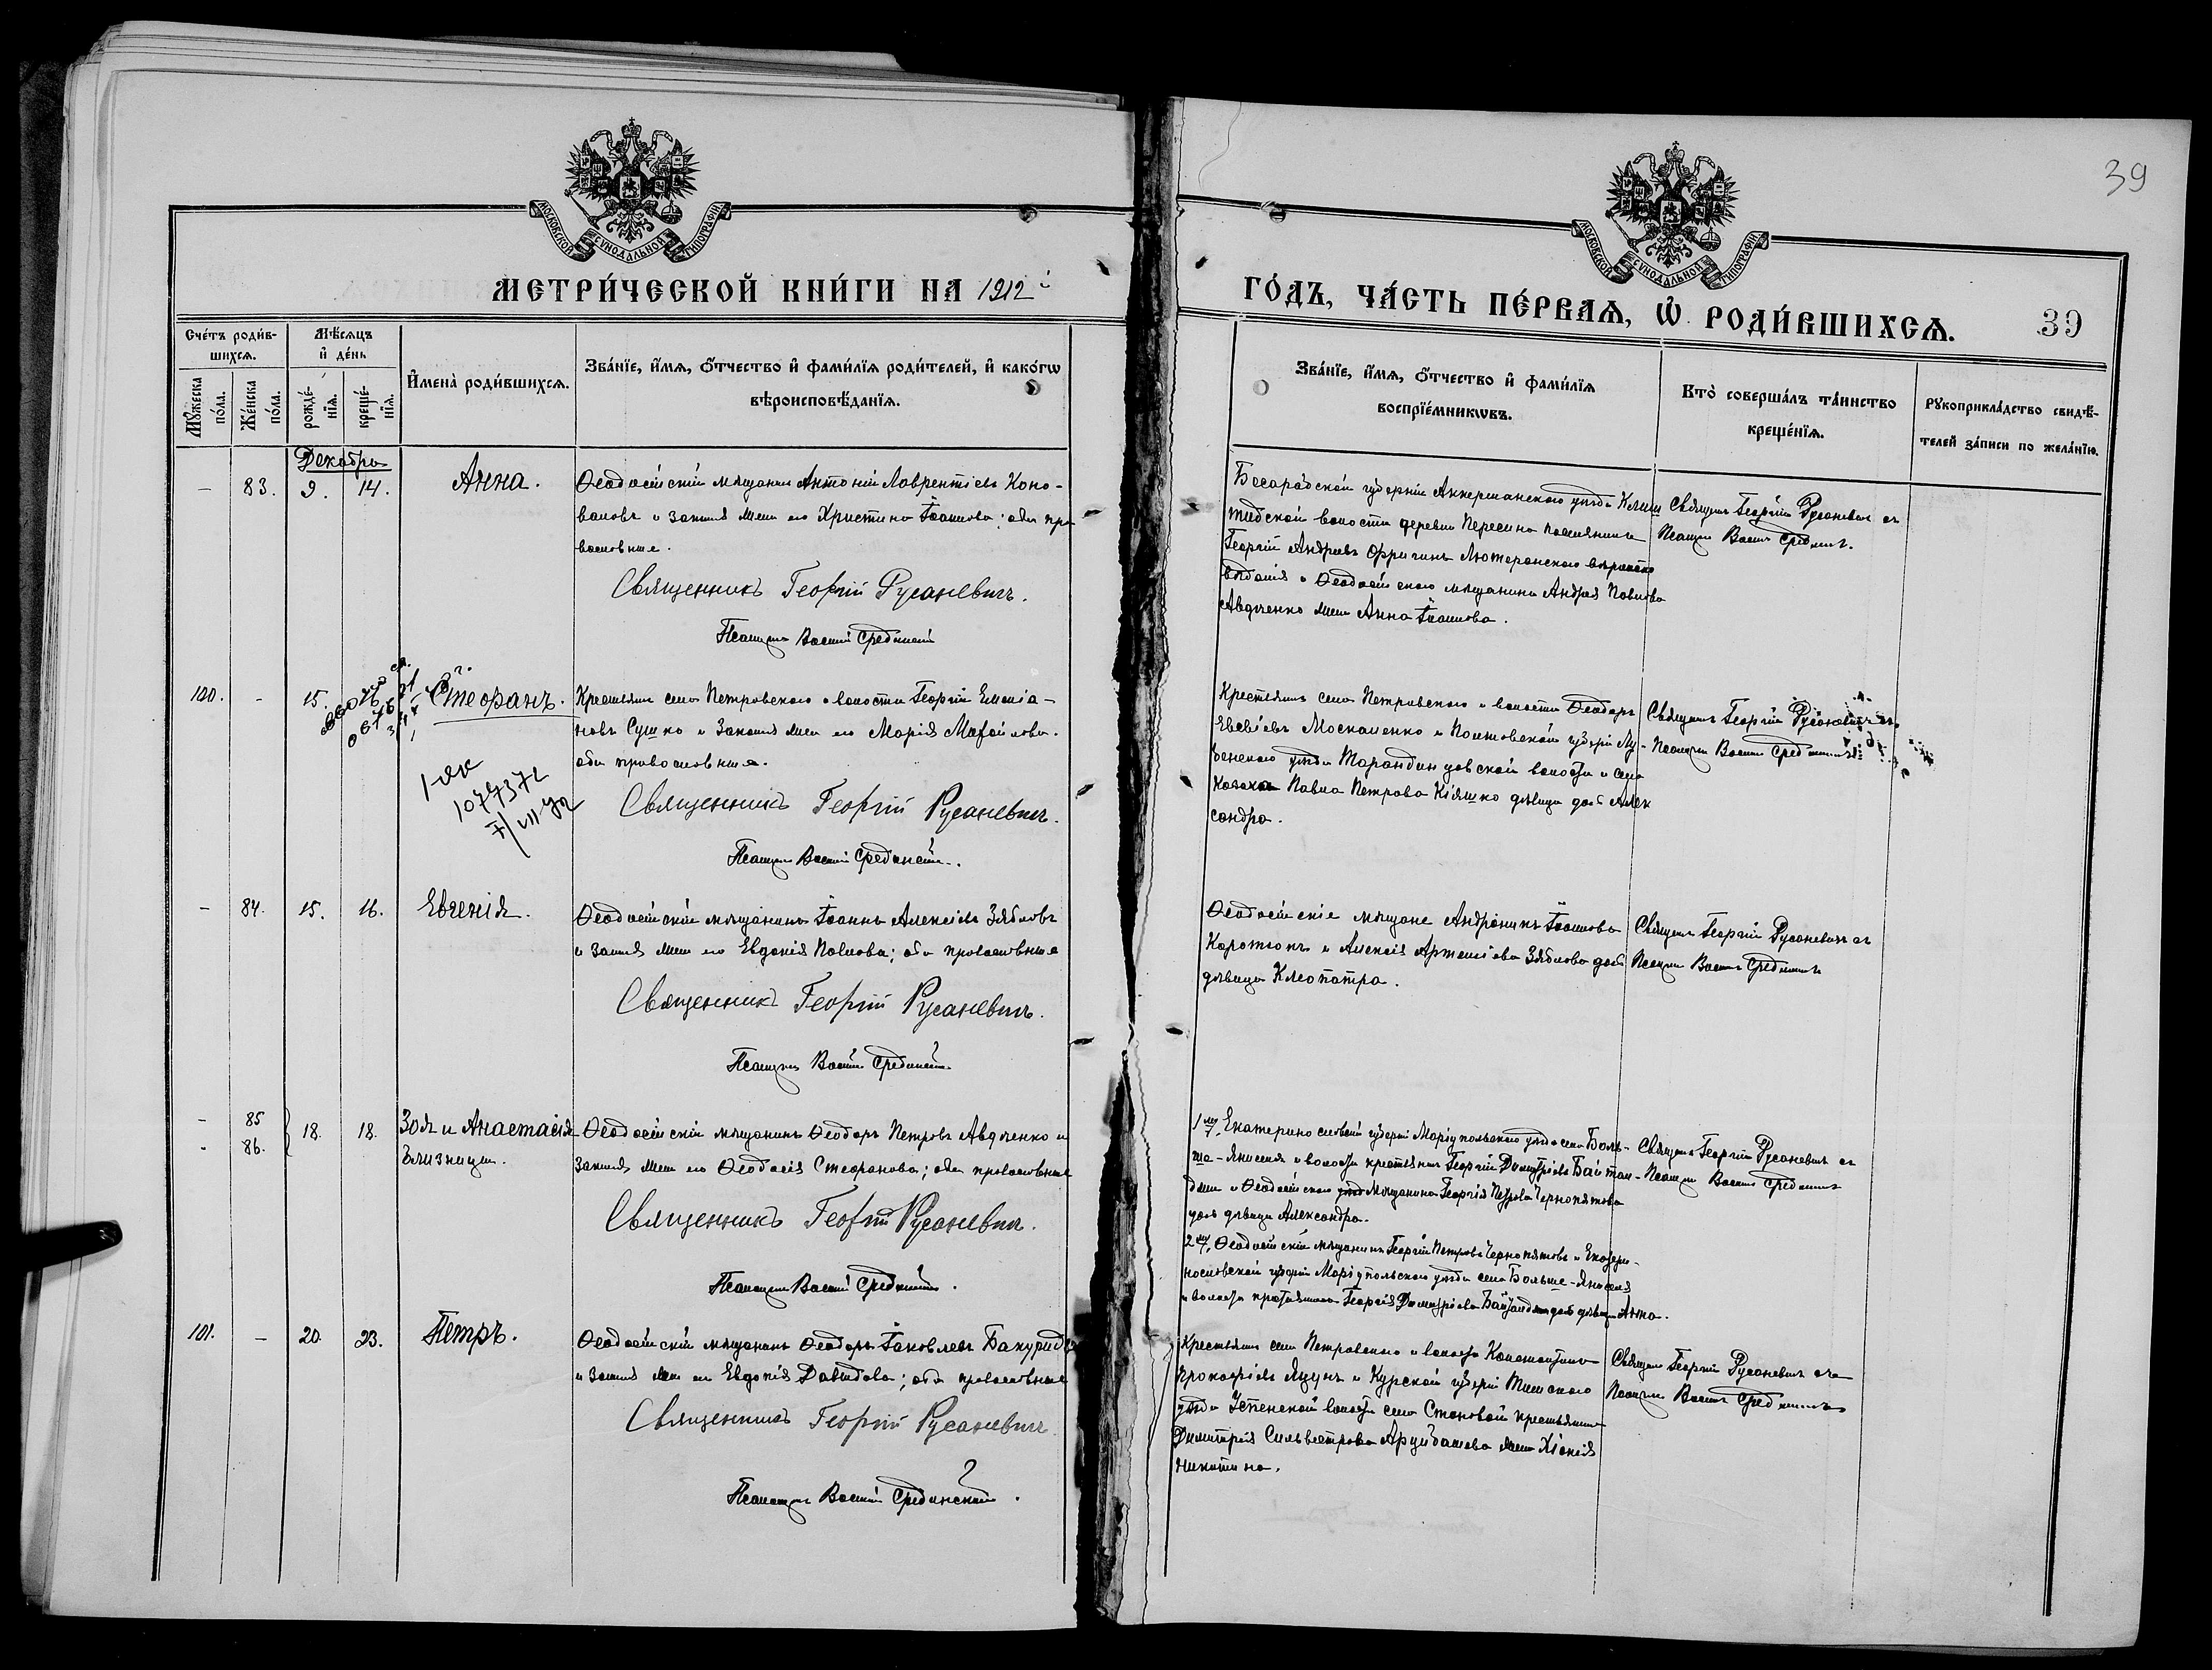 39
МОСКОВСКОЙ СѴНОДАЛЬНОЙ ТИПОГРАФІИ
МОСКОВСКОЙ СѴНОДАЛЬНОЙ ТИПОГРАФІИ
МЕТРИ́ЧЕСКОЙ КНИ́ГИ НА 1912
ГО́ДЪ, ЧА́СТЬ ПЕ́РВАѦ, Ѡ РОДИ́ВШИХСѦ. 39
Сче́тъ роди́в-
шихсѧ.
Мꙋжеска по́ла.
Же́нска по́ла.
Мѣ́сѧцъ
и де́нь
рожде́-
нїѧ.
креще́-
нїѧ.
И҆мена̀ роди́вшихсѧ.
Зва́нїе, и҆́мѧ, ѻ҆́тчество и҆ фами́лїѧ роди́телей, и҆ како́гѡ
вѣроисповѣ́данїѧ.
Зва́нїе, и҆́мѧ, ѻ҆́тчество и҆ фами́лїѧ
воспрїе́мникѡвъ.
Кто̀ соверша́лъ та́инство
креще́нїѧ.
Рꙋкоприкла́дство свидѣ́-
телей за́писи по жела́нїю.
Декабрь
— 83. 9. 14. Анна.
Ѳеодосійскій мѣщанинъ Антоній Лаврентіевъ Коно-
валовъ и законная жена его Христина Іоаннова; оба пра
вославные.
Священникъ Георгій Русаневичъ.
Псаломщикъ Василій Срединскій
Бесарабской губерніи Аккерманскаго уѣзда
волости деревни поселянинъ
Георгій Андреевъ Лютеранскаго вѣроиспо
вѣданія и Ѳеодосійскаго мѣщанина Андрея Павлова
Авдѣенко жена Анна Іоаннова.
Священникъ Георгій Русаневичъ съ
Псаломщ. Василіемъ Срединскимъ.
100. - 15. 16 Стефанъ.
Крестьянинъ села Петровскаго и волости Георгій Емеліа-
новъ Сушко и законная жена его Марія Михаилова.
оба православные.
1077372
Священникъ Георгій Русаневичъ.
Псаломщикъ Василій Срединскій.
Крестьянинъ села Петровскаго и волости Ѳеодоръ
Евсевіевъ Москаленко и Полтавской губерніи Лу-
бенскаго уѣзда волости и села
казака Павла Петрова Кіяшко дѣвица дочь Алек
сандра.
Священникъ Георгій Русаневичъ съ
Псаломщ. Василіемъ Срединскимъ
— 84. 15. 16. Евгенія.
Ѳеодосійскій мѣщанинъ Іоаннъ Алексіевъ Зябловъ
и законная жена его Евдокія Павлова; оба православные
Священникъ Георгій Русаневичъ.
Псаломщикъ Василій Срединскій
Ѳеодосійскіе мѣщане Андроникъ Іоанновъ
и Алексія Артеміева Зяблова дочь
дѣвица Клеопатра.
Священникъ Георгій Русаневичъ съ
Псаломщ. Василіемъ Срединскимъ
- 85
- 86. 18. 18. Зоя и Анастасія
близнецы.
Ѳеодосійскій мѣщанинъ Ѳеодоръ Петровъ Авдѣенко и
законная жена его Ѳеодосія Стефанова; оба православные
Священникъ Георгій Русаневичъ.
Псаломщикъ Василій Срединскій.
1й, Екатеринославской губерніи Маріупольскаго уѣзда села Боль-
ше-Янисоля и волости крестьянинъ Георгій Димитріевъ
и Ѳеодосійскаго мѣщанина Георгія Петрова Чернопятова
дочь дѣвица Александра.
2й, Ѳеодосійскій мѣщанинъ Георгій Петровъ Чернопятовъ и Екатери-
нославской губерніи Маріупольскаго уѣзда села Больше-Янисоля
и волости крестьянина Георгія Димитріева дочь дѣвица Анна.
Священникъ Георгій Русаневичъ съ
Псаломщ. Василіемъ Срединскимъ
101. — 20. 23. Петръ.
Ѳеодосійскій мѣщанинъ Ѳеодоръ Іаковлевъ
и законная жена его Евдокія Давидова; оба православные
Священникъ Георгій Русаневичъ
Псаломщикъ Василій Срединскій.
Крестьянинъ села Петровскаго и волости Константинъ
Прокофіевъ Яцунъ и Курской губерніи Тимскаго
уѣзда Успенской волости села Становой крестьянина
Димитрія Сильвестрова Арцибашева жена Хіонія
Никитина.
Священникъ Георгій Русаневичъ съ
Псаломщ. Василіемъ Срединскимъ